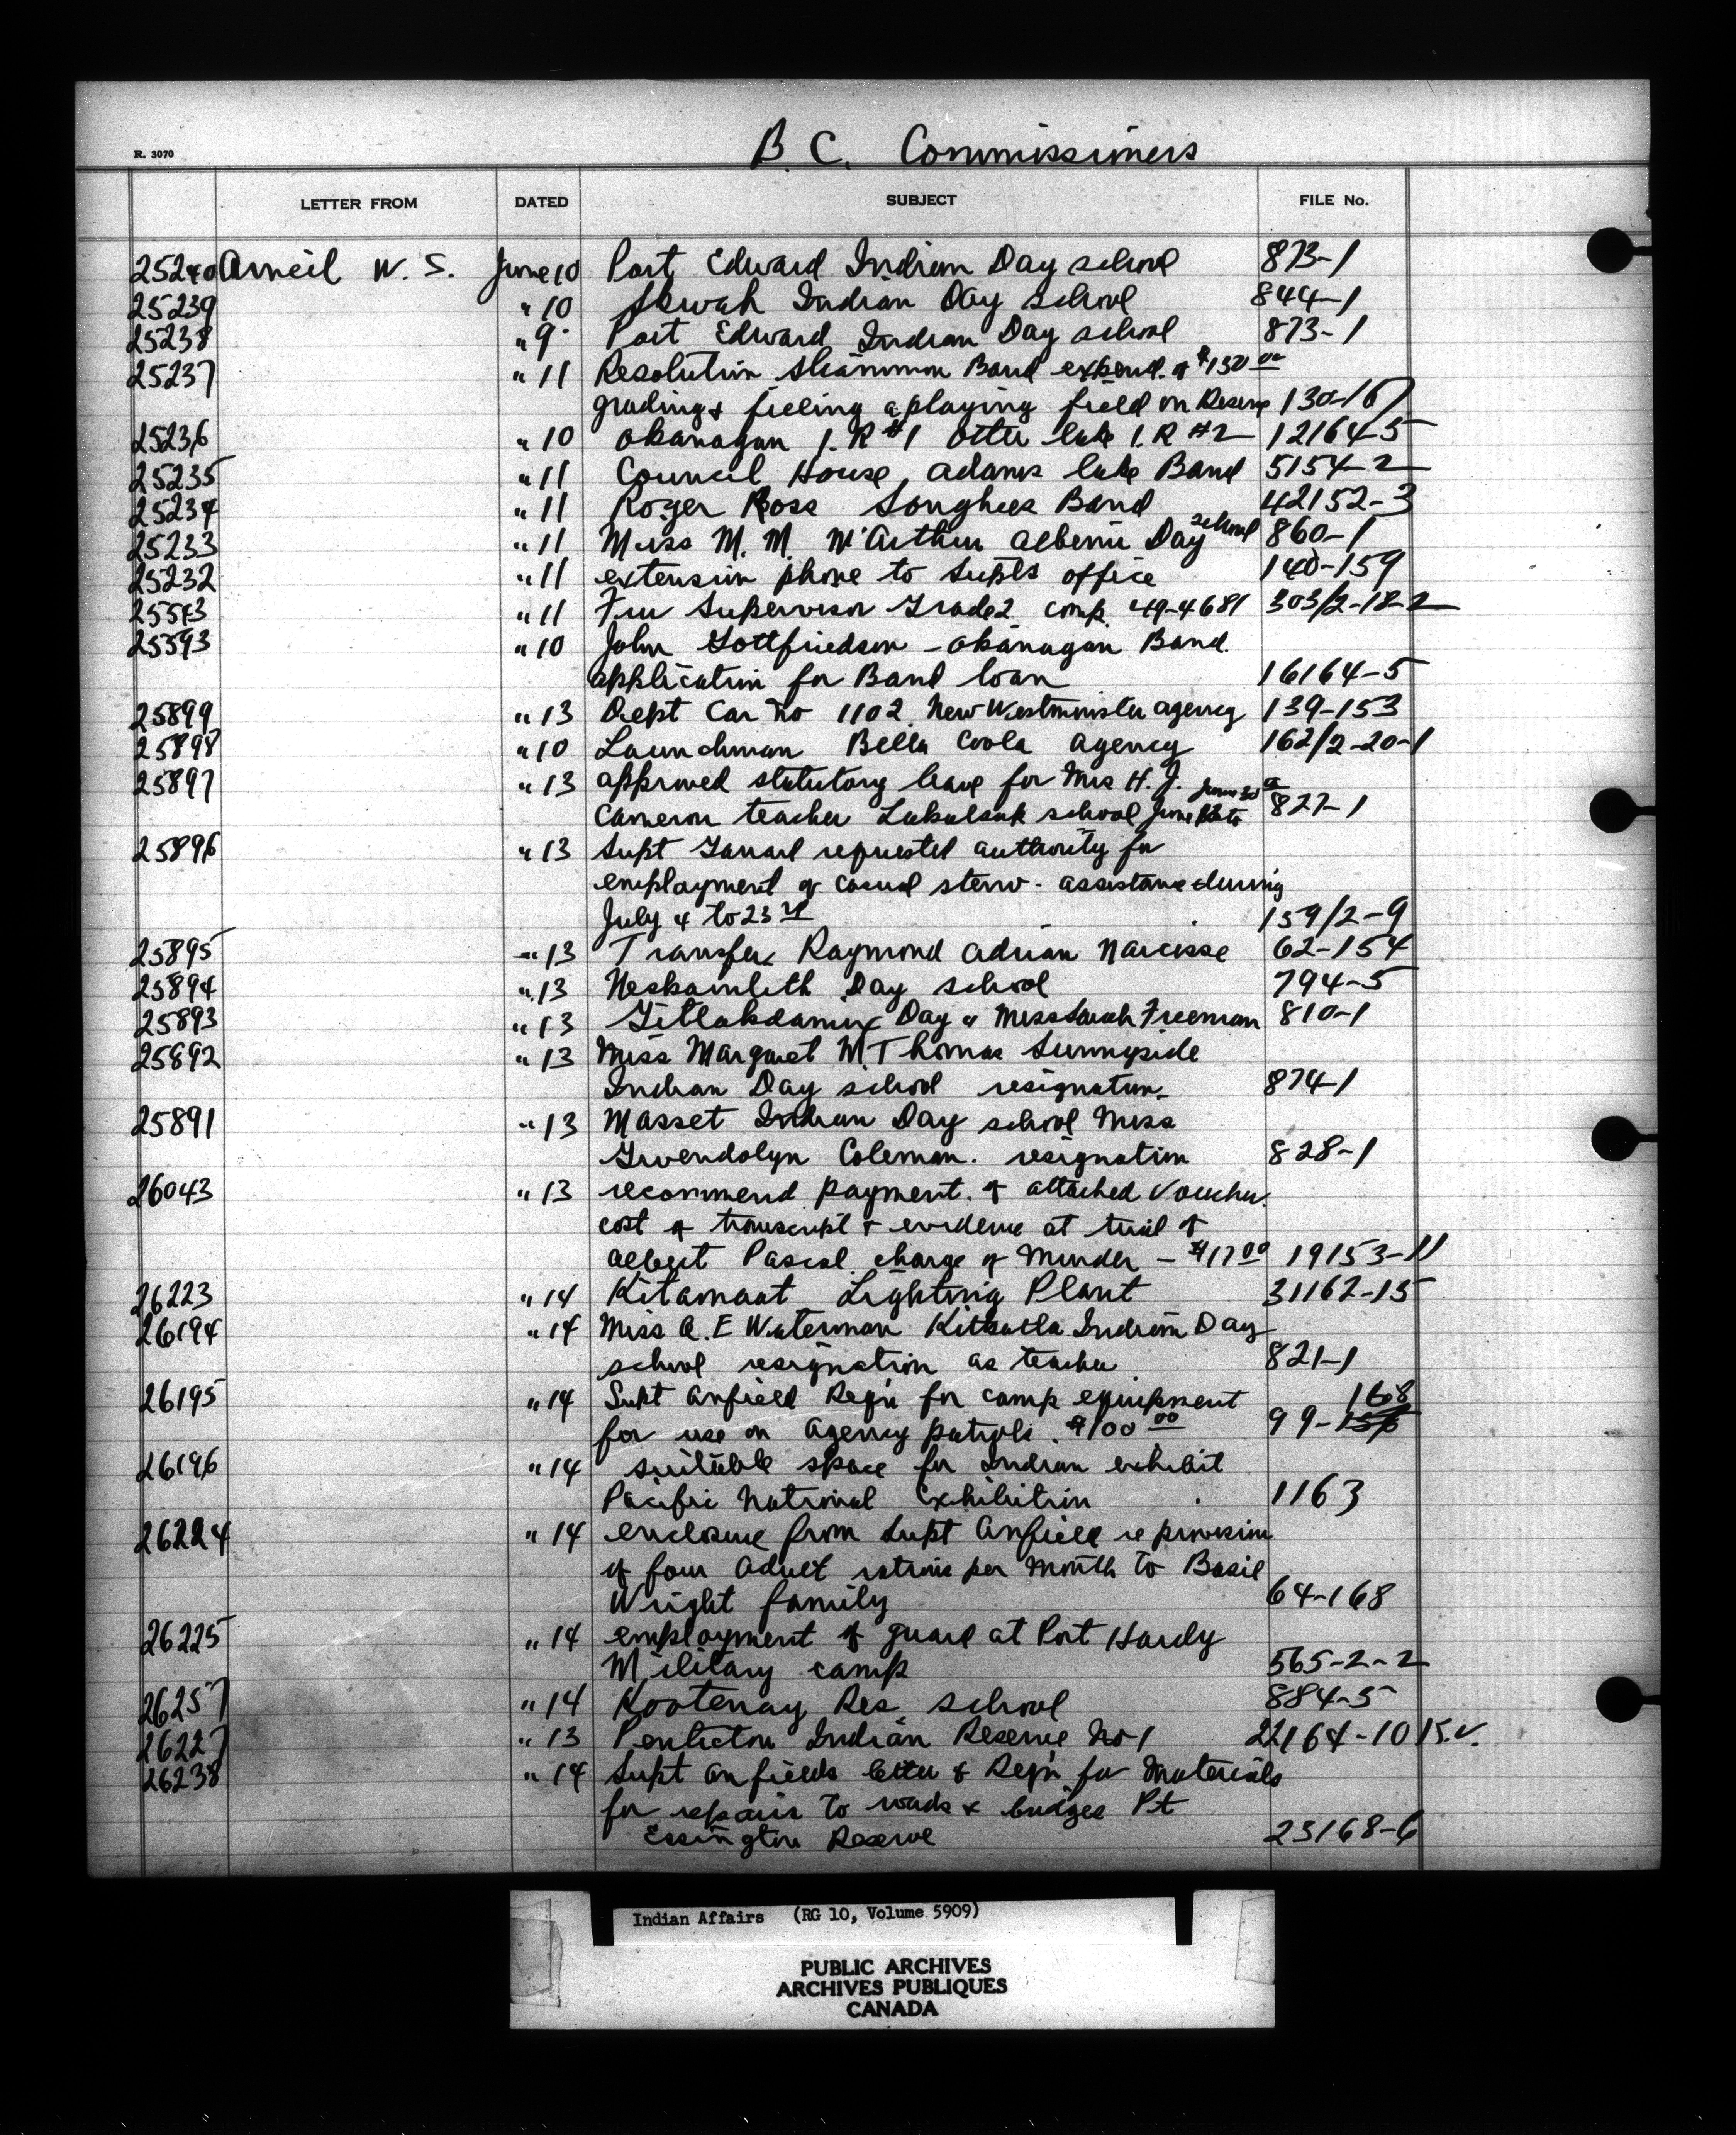 R. 3070
B.C. Commissioners
LETTER FROM DATED SUBJECT FILE No.
25240 Arneil W. S. June 10 Port Edward Indian Day school 873-1
25239 " 10 Skwah Indian Day School 844-1
25238 " 9 Port Edward Indian Day school 873-1
25237 " 11 Resolution Sliammon Band expend. of $150 00
grading & filling a playing field on Reserve 130-167
25236 " 10 Okanagan I.R #1 Otter lake I.R #2 12164-5
25235 " 11 Council House Adams lake Band 5154-2
25234 " 11 Roger Ross Songhees Band 42152-3
25233 " 11 Miss M. M. McArthur Alberni Day school 860-1
25232 " 11 extension phone to Supts office 140-159
25543 " 11 Fur Supervisor Grade 2 comp. 49-4681 303/2-18-2
25593 " 10 John Gottfriedson - Okanagan Band.
application for Band loan 16164-5
25899 " 13 Dept Car No 1102 New Westminster agency 139-153
25898 " 10 Launchman Bella Coola Agency 162/2-20-1
25897 " 13 approved statutory leave for Mrs H. J. June 30
Cameron teacher Lakalsak school June to 827-1
25896 " 13 Supt requested authority for
employment of casual steno - assistance during
July 4 to 23rd 159/2-9
25895 " 13 Transfer Raymond Adrian Narcisse 62-154
25894 " 13 Neskainlith Day school 794-5
25893 " 13 Gitlakdamix Day " Miss Sarah Freeman 810-1
25892 " 13 Miss Margaret M. Thomas Sunnyside
Indian Day school resignation 874-1
25891 " 13 Masset Indian Day school Miss
Gwendolyn Coleman. resignation 828-1
26043 " 13 recommend payment of attached Voucher.
cost of transcript & evidence at trial of
Albert Pascal charge of Murder - $17 00 19153-11
26223 " 14 Kitamaat Lighting Plant 31162-15
26194 " 14 Miss A. E Waterman Kitkatla Indian Day
school resignation as teacher 821-1
26195 " 14 Supt Anfield Reqn for camp equipment 168
for use on Agency patrols. $100 00 99-156
26196 " 14 suitable space for Indian exhibit
Pacific National Exhibition 1163
26224 " 14 enclosure from Supt Anfield re provision
of four Adult rations per Month to Basil
Wright family 64-168
26225 " 14 employment of guard at Port Hardy
Military camp 565-2-2
26257 " 14 Kootenay Res. school 884-5
26227 " 13 Penticton Indian Reserve No 1 22164-10 R.V.
26238 " 14 Supt Anfields letter & Reqn for Materials
for repairs to roads & bridges Pt
Essington Reserve 23168-6
Indian Affairs (RG 10, Volume 5909)
PUBLIC ARCHIVES
ARCHIVES PUBLIQUES
CANADA